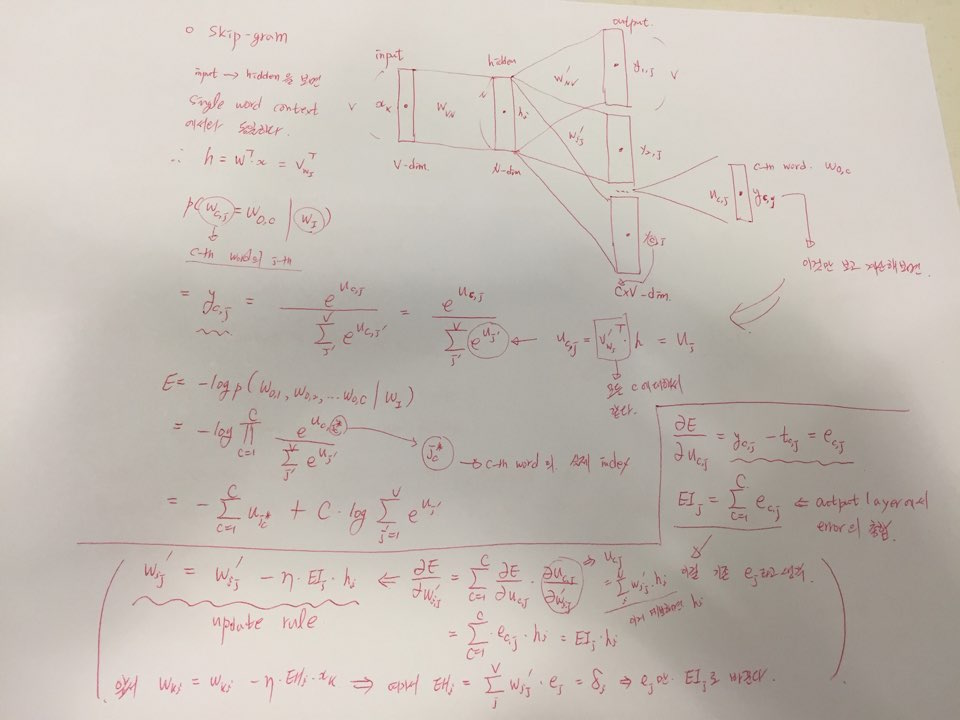 o Skip-gram
input → hidden을 보면
single word context
에서와 동일하다.
∴ h = W^T·x = v_{w_I}^T
p(w_{c,j} = w_{O,c} | w_I)
c-th word의 j-th
input
V
x_k
W_{VN}
V-dim.
hidden
N
h_i
N-dim
output.
W'_{NV}
W'_{ij}
y_{1,j}
V
y_{2,j}
...
y_{C,j}
C×V-dim.
c-th word. w_{O,c}
u_{c,j}
y_{c,j}
이것만 보고 계산해보면.
= y_{c,j} = e^{u_{c,j}} / Σ_{j'}^V e^{u_{c,j'}} = e^{u_{c,j}} / Σ_{j'}^V e^{u_{j'}} ← u_{c,j} = v'_{w_j}^T · h = u_j
모든 c에 대해서
같다.
E = -log p(w_{O,1}, w_{O,2}, ... w_{O,C} | w_I)
= -log Π_{c=1}^C e^{u_{c,j_c^*}} / Σ_{j'}^V e^{u_{j'}}
j_c^* → c-th word의. 실제 index
= - Σ_{c=1}^C u_{j_c^*} + C · log Σ_{j'=1}^V e^{u_{j'}}
∂E/∂u_{c,j} = y_{c,j} - t_{c,j} = e_{c,j}
EI_j = Σ_{c=1}^C e_{c,j} ⇐ output layer에서
error의 총합
이걸 기존 e_j라고 생각.
w'_{ij} = w'_{ij} - η · EI_j · h_i ⇐ ∂E/∂w'_{ij} = Σ_{c=1}^C ∂E/∂u_{c,j} · ∂u_{c,j}/∂w'_{ij} ⇒ u_{c,j}
= Σ_i w'_{ij} · h_i
이거 미분하면 h_i
update rule
= Σ_{c=1}^C · e_{c,j} · h_i = EI_j · h_i
w_{ki} = w_{ki} - η · EH_i · x_k ⇒ 여기서 EH_i = Σ_j^V w'_{ij} · e_j = δ_i ⇒ e_j만 EI_j로 바뀐다.